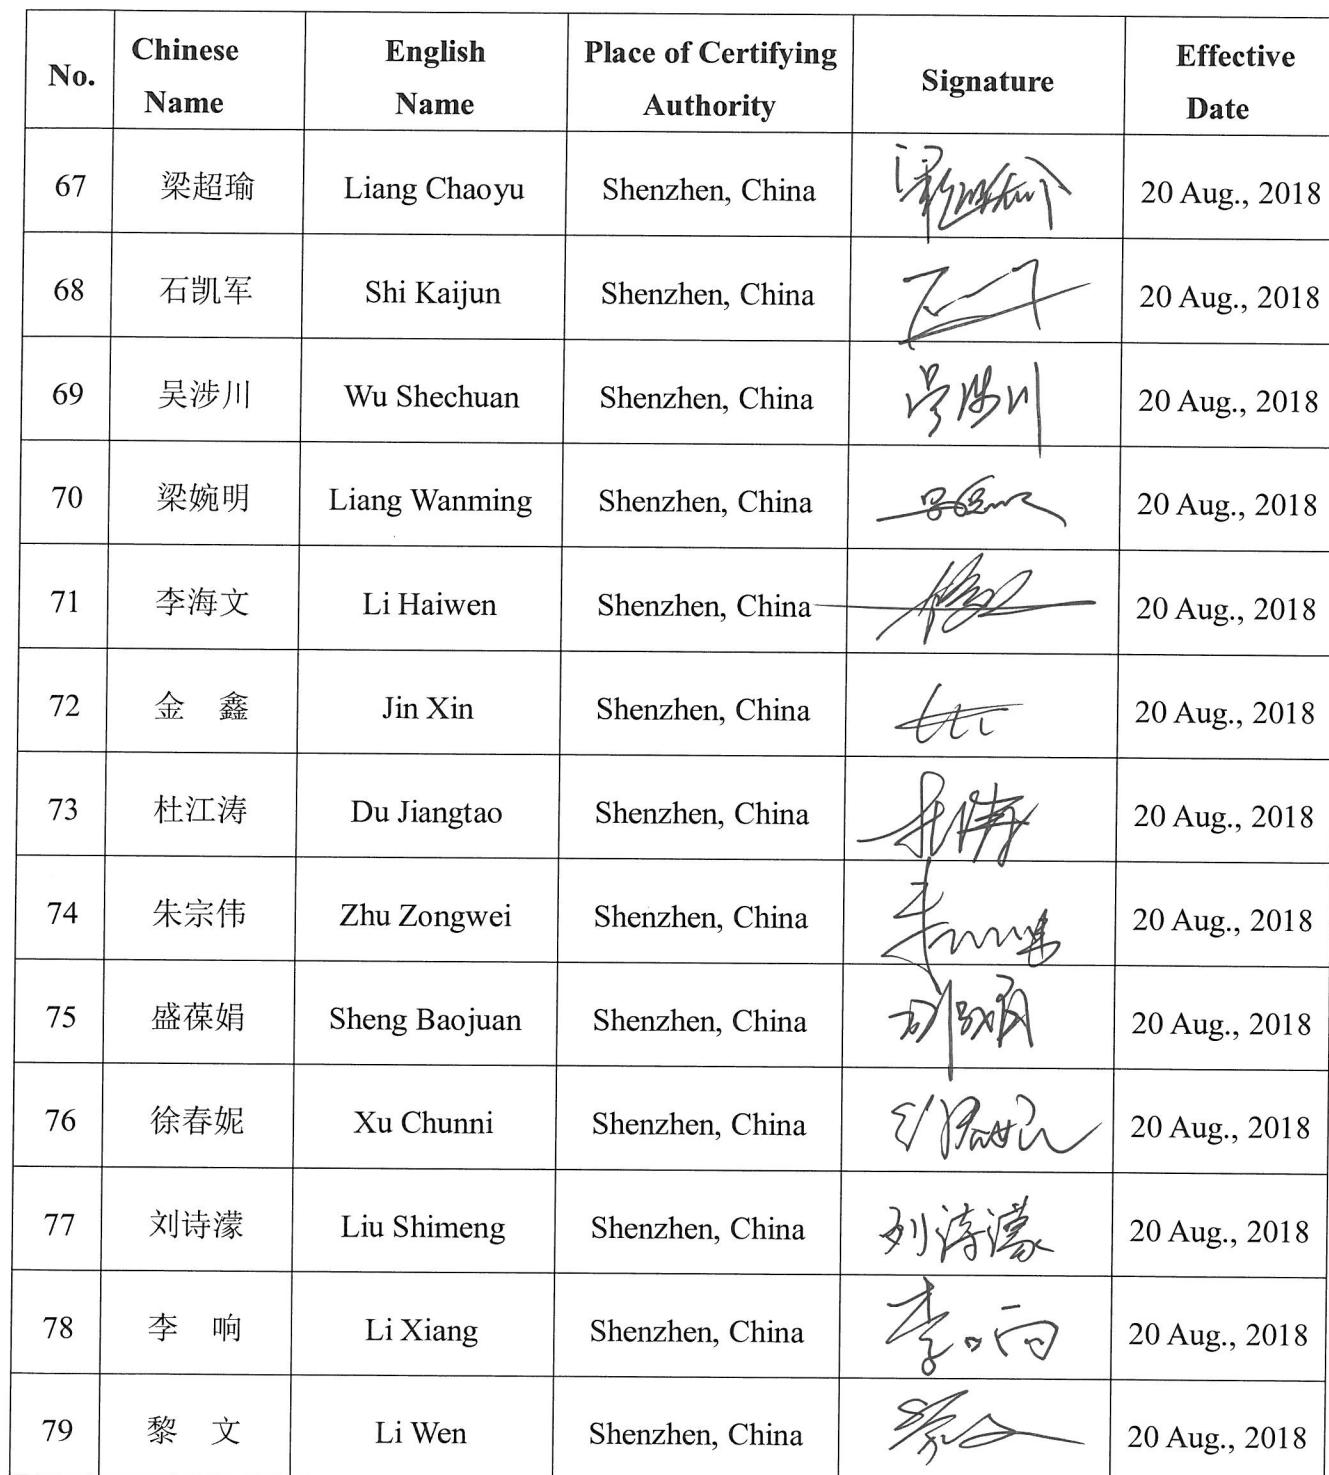 No. Chinese Name English Name Place of Certifying Authority Signature Effective Date
67 梁超瑜 Liang Chaoyu Shenzhen, China 20 Aug., 2018
68 石凯军 Shi Kaijun Shenzhen, China 20 Aug., 2018
69 吴涉川 Wu Shechuan Shenzhen, China 吴涉川 20 Aug., 2018
70 梁婉明 Liang Wanming Shenzhen, China 20 Aug., 2018
71 李海文 Li Haiwen Shenzhen, China 20 Aug., 2018
72 金 鑫 Jin Xin Shenzhen, China 20 Aug., 2018
73 杜江涛 Du Jiangtao Shenzhen, China 20 Aug., 2018
74 朱宗伟 Zhu Zongwei Shenzhen, China 20 Aug., 2018
75 盛葆娟 Sheng Baojuan Shenzhen, China 20 Aug., 2018
76 徐春妮 Xu Chunni Shenzhen, China 20 Aug., 2018
77 刘诗濛 Liu Shimeng Shenzhen, China 刘诗濛 20 Aug., 2018
78 李 响 Li Xiang Shenzhen, China 李响 20 Aug., 2018
79 黎 文 Li Wen Shenzhen, China 20 Aug., 2018